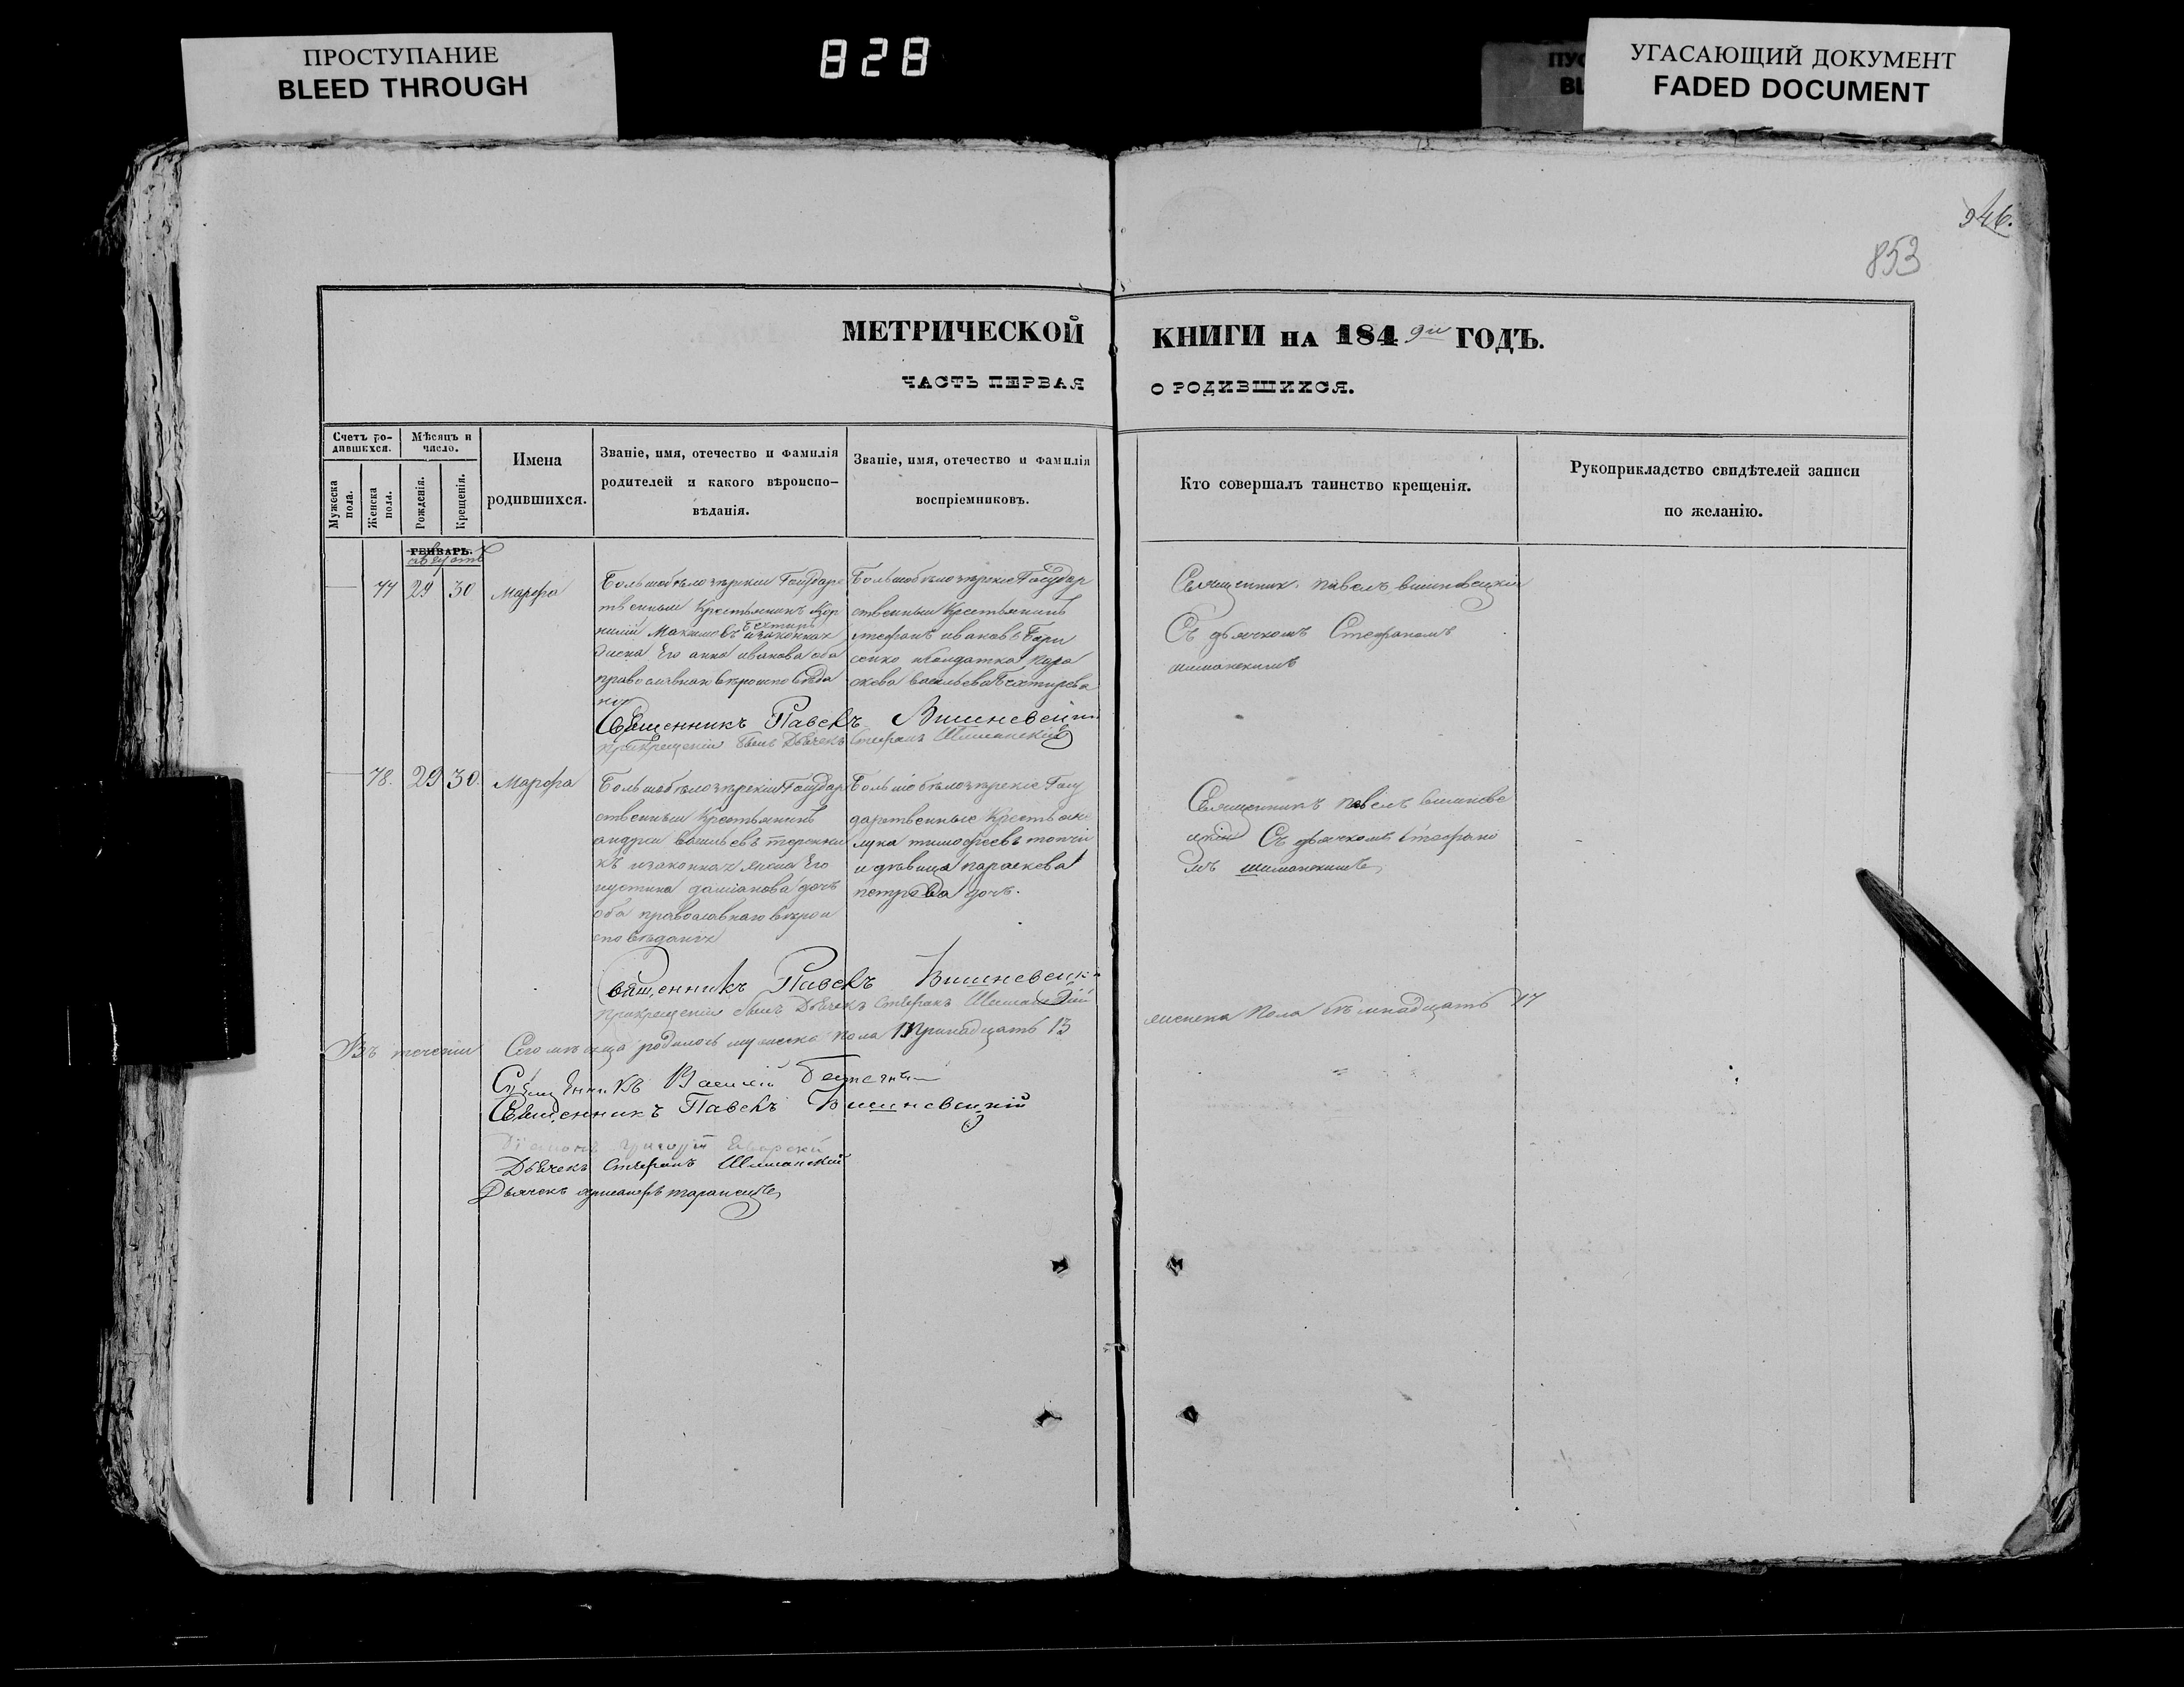 ПРОСТУПАНИЕ
BLEED THROUGH
828
УГАСАЮЩИЙ ДОКУМЕНТ
FADED DOCUMENT
946.
853
МЕТРИЧЕСКОЙ КНИГИ НА 1849й ГОДЪ.
ЧАСТЬ ПЕРВАЯ О РОДИВШИХСЯ.
Счетъ ро-
дившихся.
Мужеска пола.
Женска пола.
Мѣсяцъ и
число.
Рожденія.
Крещенія.
Имена
родившихся.
Званіе, имя, отечество и фамилія
родителей и какого вѣроиспо-
вѣданія.
Званіе, имя, отечество и фамилія
воспріемниковъ.
Кто совершалъ таинство крещенія.
Рукоприкладство свидѣтелей записи
по желанію.
ГЕНВАРЬ.
августъ
77 29 30 Марфа
Большобѣлозѣрскіи Государс
твенныи Крестьянинъ Кор
нилій Максимовъ Бехтиръ изаконная
жена Его анна иванова оба
православнаго вѣроисповѣда
нія
Большобѣлозѣрскіе Государ
ственныи Крестьянинъ
стефанъ ивановъ Бори
сенко исолдатка пара
скева васильева Бехтирева
Священникъ Павелъ Вишневецкій
Прикрещеніи былъ Дьячекъ Стефанъ Шиманскій
Священникъ павелъ вишневецкіи
Съ дьячкомъ Стефаномъ
шиманскимъ
78. 29 30. Марфа
Большобѣлозѣрскіи Государ
ственныи Крестьянинъ
андреи васильевъ
изаконная жена Его
иустина даміанова дочь
оба православнаго вѣрои
сповѣданія
Большобѣлозѣрскіе Госу
дарственные Крестьяне
лука тимофеевъ топчіи
и дѣвица параскева
петрова дочь.
Священникъ Павелъ Вишневецкі
Прикрещеніи былъ Дьячекъ Стефанъ Шиманскій
Священникъ павелъ вишневе
цкіи Съ дьячкомъ Стефано
мъ шиманскимъ
Въ теченіи Сего мѣсяца родилось мужеска пола Тринадцать 13
женска пола семнадцать 17
Священникъ Василій
Священникъ Павелъ Вишневецкій
Діаконъ Григорій
Дьячекъ Стефанъ Шиманскій
Дьячекъ